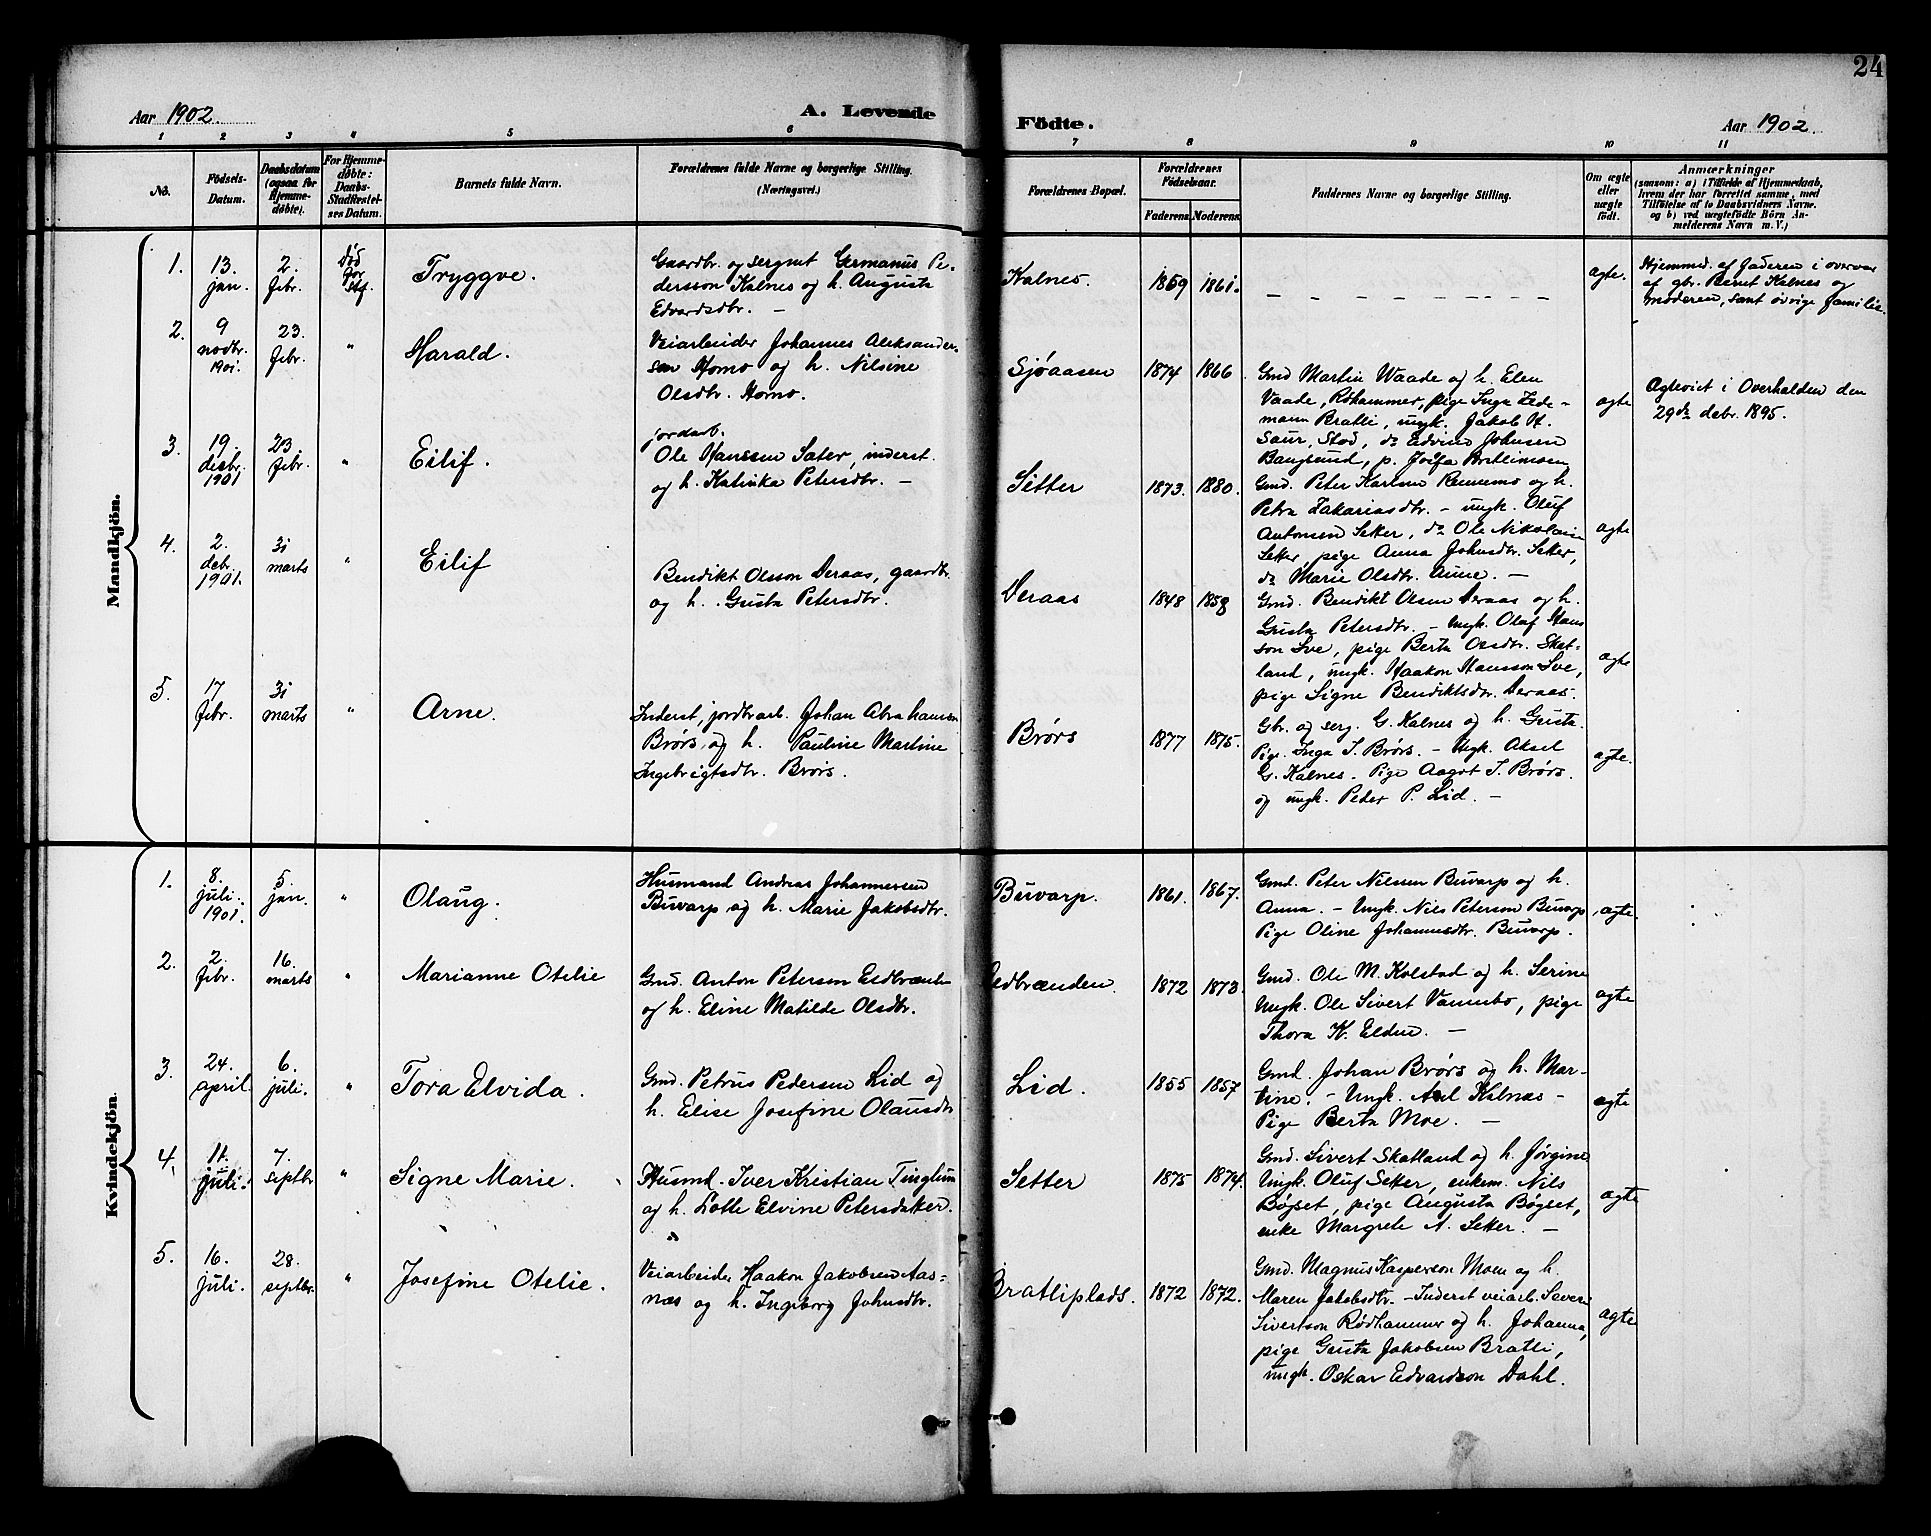 24
Aar 1902.
A. Levende
Födte.
Aar 1902.
1 2 3 4 5 6 7 8 9 10 11
No.
Födsels-
Datum.
Daabsdatum
(ogsaa for
Hjemme-
döbte).
For Hjemme-
döbte:
Daabs-
Stadfæstel-
ses Datum.
Barnets fulde Navn.
Forældrenes fulde Navne og borgerlige Stilling.
(Næringsvei.)
Forældrenes Bopæl.
Forældrenes
Födselsaar.
Faderens Moderens
Faddernes Navne og borgerlige Stilling.
Om ægte
eller
uægte
födt.
Anmærkninger
(saasom: a) i Tilfælde af Hjemmedaab,
hvem der har forrettet samme, med
Tilföielse af to Daabsvidners Navne.
og b) ved uægtefödte Börn An-
melderens Navn m. V.)
Mandkjön.
1.
13.
jan.
2.
febr.
Død
før
stf.
Tryggve.
Gaardbr. og sergnt Germanus Pe-
dersson Kalnes og h. Augusta
Edvardsdtr. —
Kalnes.
1869
1861.
ægte.
Hjemmed. af faderen i overvær
af gbr. Bernt Kalnes og
moderen, samt øvrige familie.
2.
9
novbr.
1901.
23.
febr.
"
Harald.
Veiarbeider Johannes Aleksander-
sen Homo og h. Nilsine
Olsdtr. Homo.
Sjøaasen
1874
1866
Gmd Martin Waade og h. Elen
Vaade, Røhammer, pige Inga Zede-
mann Bratli, ungk. Jakob H.
Saur, Stod, do Edvin Johnsen
Bangsund, p. Josefa Bratlimoen
ægte
Ægteviet i Overhalden den
29de debr. 1895.
3.
19.
desbr.
1901
23.
febr.
"
Eilif.
jordarb.
Ole Hanssen Sæter, inderst.
og h. Katinka Petersdtr. —
Sitter
1873.
1880.
Gmd. Peter Karlsen Rennemo og h.
Petra Zakariasdtr. — ungk. Oluf
Antonsen Setter, do Ole Nikolaisen
Setter, pige Anna Johnsdtr. Setter,
do Marie Olsdtr. Aune. —
ægte
4.
2.
debr.
1901.
31
marts
"
Eilif
Bendikt Olsson Deraas, gaardbr.
og h. Gusta Petersdtr.
Deraas
1848
1858
Gmd. Bendikt Olsen Deraas og h.
Gusta Petersdtr. — Ungk. Olaf Hans
son Sve, pige Berta Olsdtr. Skat-
land, ungk. Haakon Hansson Sve,
pige Signe Bendiktsdtr. Deraas.
ægte
5.
17
febr.
31
marts
"
Arne.
Inderst, jordbrarb. Johan Abrahamsen
Brørs, og h. Pauline Martine
Ingebrigtsdtr. Brørs.
Brørs
1877
1875.
Gbr. og serg. G. Kalnes og h. Gusta.
Pige Inga I. Brørs. — Ungk. Aksel
G. Kalnes. Pige Aagot I. Brørs.
og ungk. Peder P. Lid. —
ægte.
Kvindekjön.
1.
8.
juli.
1901.
5.
jan.
"
Olaug.
Husmand Andreas Johannessen
Buvarp og h. Marie Jakobsdtr.
Buvarp.
1861.
1867.
Gmd. Peter Nilsen Buvarp og h.
Anna. — Ungk. Nils Peterson Buvarp
Pige Oline Johannesdtr. Buvarp.
ægte.
2.
2.
febr.
16.
marts
"
Marianne Otelie
Gmd. Anton Peterson Eidbrænden
og h. Eline Matilde Olsdtr.
Eidbrænden
1872
1873.
Gmd. Ole M. Kolstad og h. Serine
Ungk. Ole Sivert Vannebo, pige
Thora K. Elden. —
ægte
3.
24.
april
6.
juli.
"
Tora Elvida.
Gmd. Petrus Pedersen Lid og
h. Elise Josefine Olausdtr
Lid.
1855
1857
Gmd. Johan Brørs og h. Mar-
tine. — Ungk. Axel Kalnæs —
Pige Berta Moe. —
ægte
4.
11.
juli.
7.
septbr
"
Signe Marie.
Husmd. Iver Kristian Tinglum
og h. Lotte Elvine Petersdatter.
Setter
1875
1874.
Gmd. Sivert Skatland og h. Jørgine
Ungk. Oluf Setter, enkem. Nils
Bøgset, pige Augusta Bøgset,
enke Margrete A. Setter. —
ægte
5.
16.
juli.
28.
septbr.
"
Josefine Otelie.
Veiarbeider Haakon Jakobsen Aas-
næs og h. Ingeborg Johnsdtr.
Bratliplads.
1872
1872.
Gmd. Magnus Kasperson Moen og h.
Maren Jakobsdtr. — Inderst veiarb. Severi
Sivertson Rødhammer og h. Johanna,
pige Gusta Jakobsen Bratli,
ungk. Oskar Edvardson Dahl.
ægte